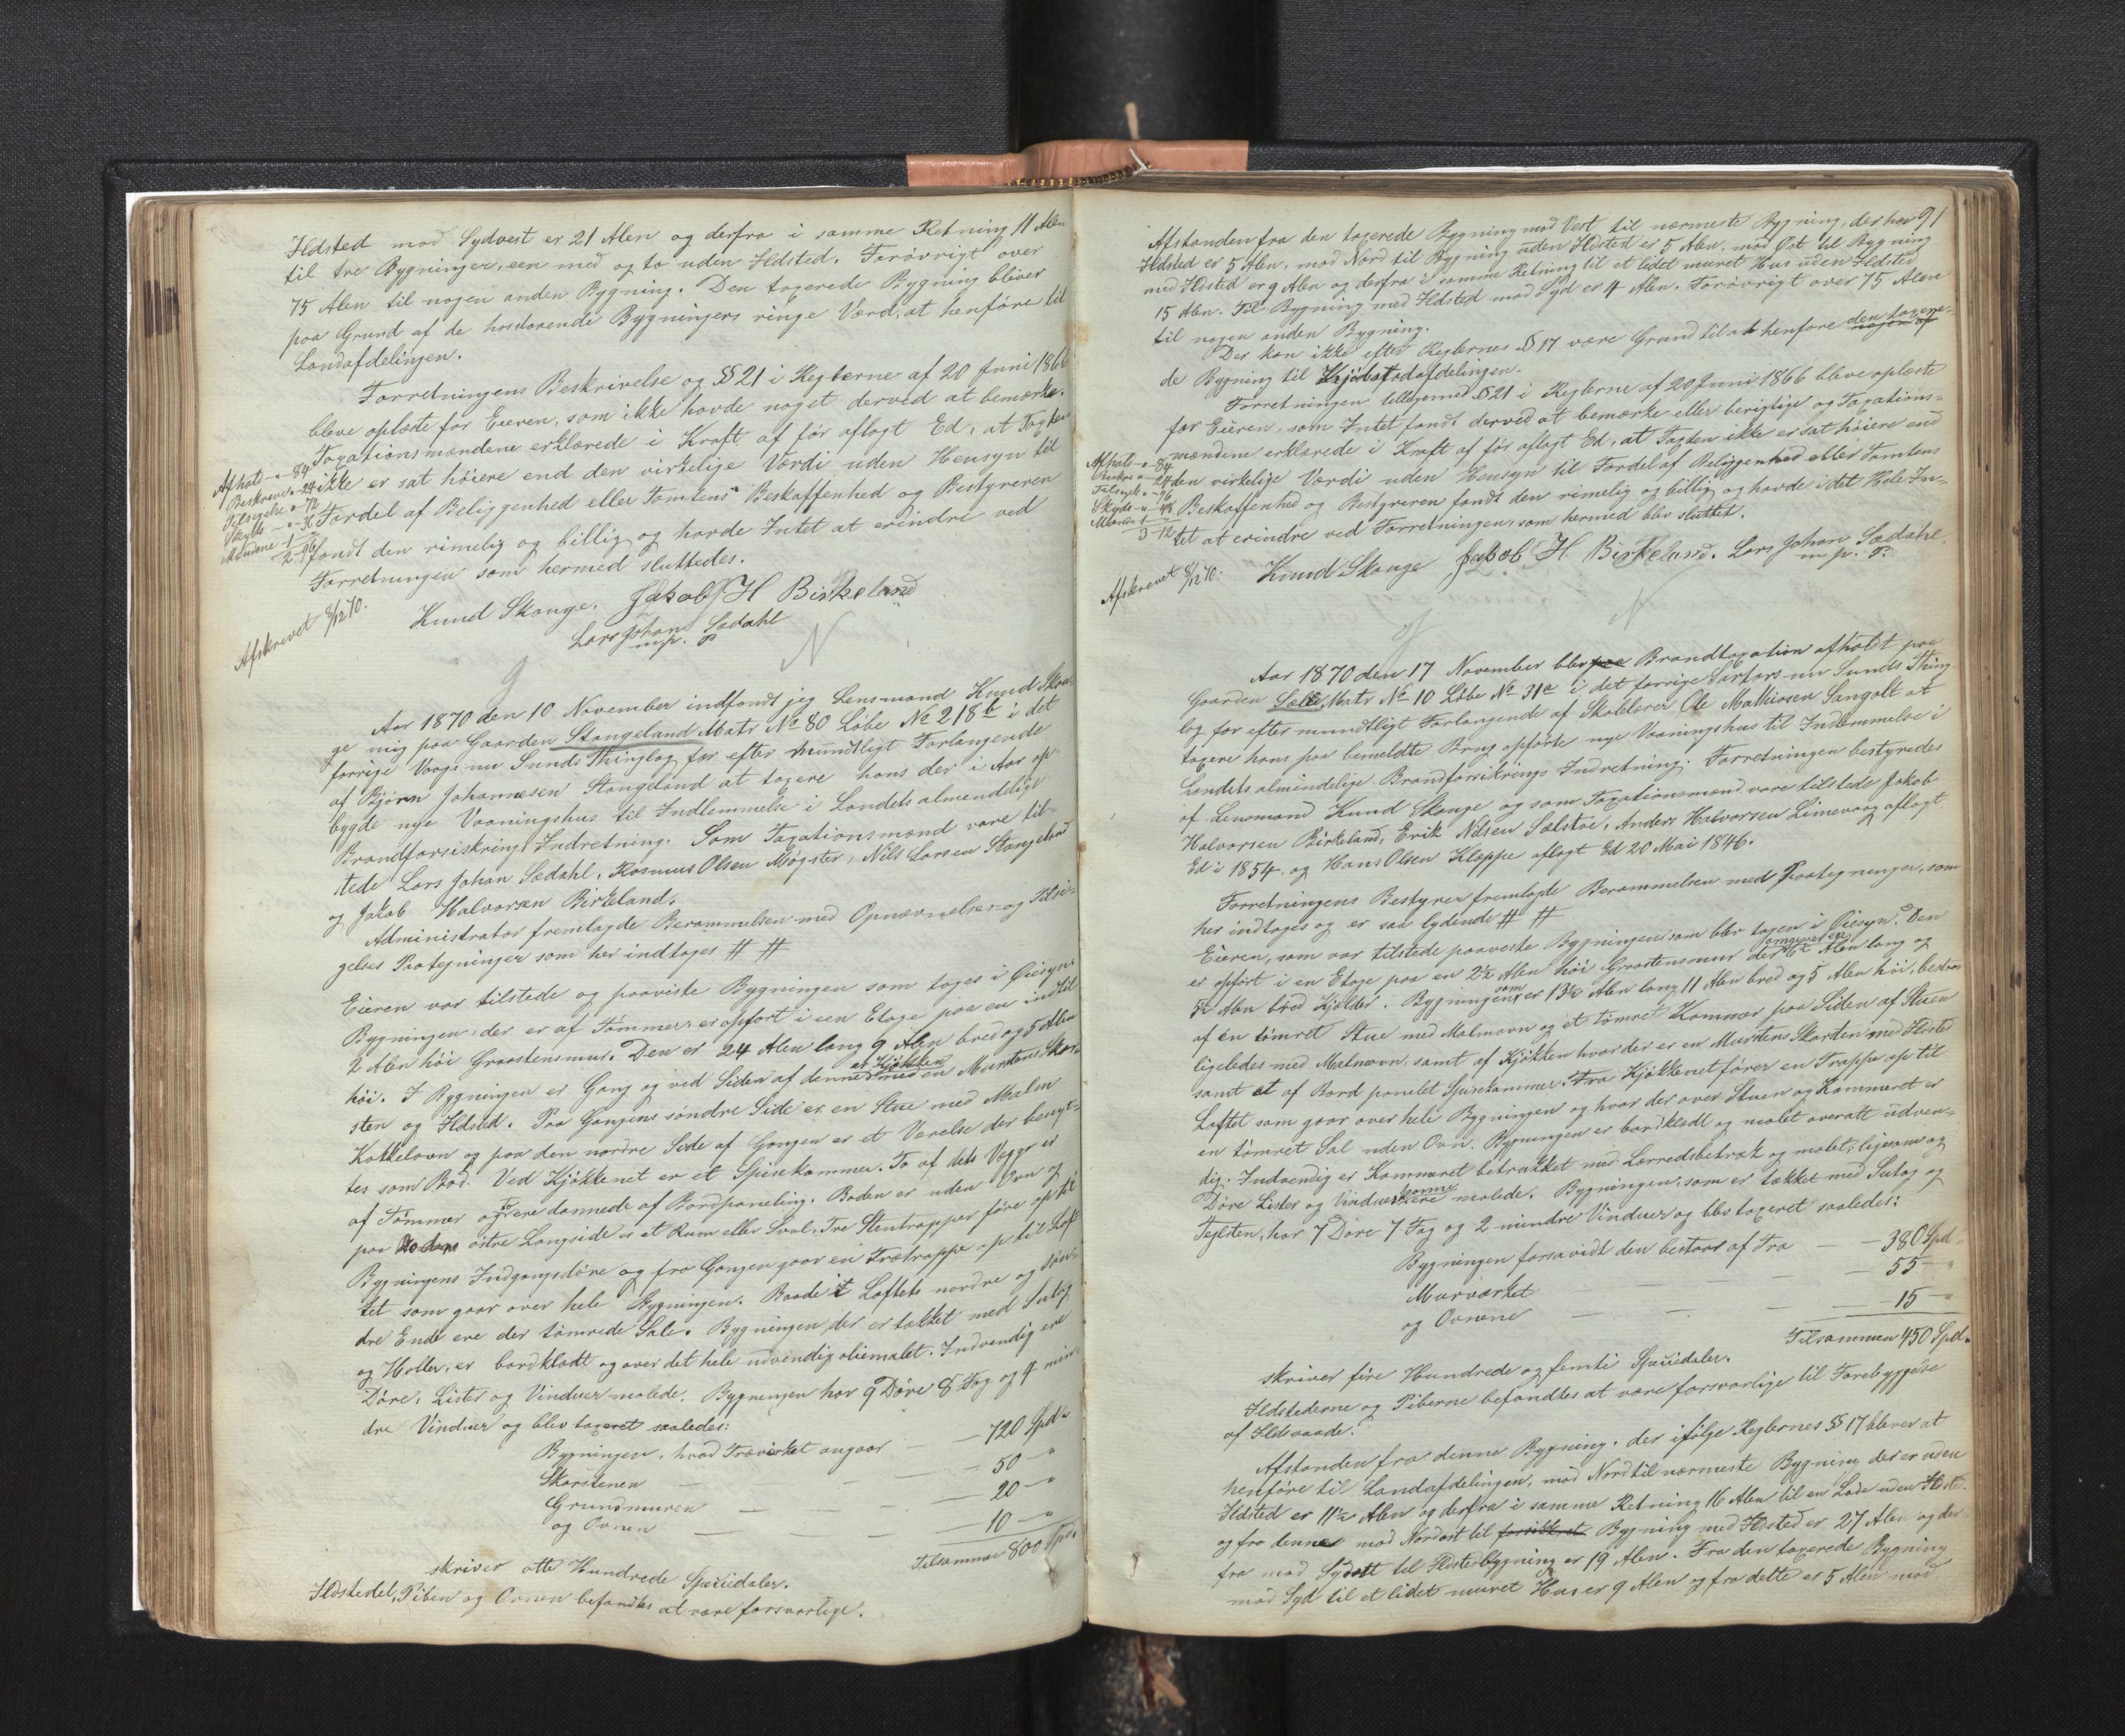 Ildsted mod Sydvest er 21 Alen og derfra i samme Retning 11 Alen
til tre Bygninger, een med og to uden Ildsted. Forøvrigt over
75 Alen til nogen anden Bygning. Den taxerede Bygning bliver
paa Grund af de hosstaaende Bygningers ringe Værd, at henføre til
Landafdelingen.
Forretningens Beskrivelse og §§ 21 i Reglerne af 20 Juni 1866
bleve oplæste for Eieren, som ikke havde noget derved at bemærke.
Taxationsmændene erklærede i Kraft af før aflagt Ed, at Taxten
ikke er sat høiere end den virkelige Værdi uden Hensyn til
Fordel af Beliggenhed eller Tomtens Beskaffenhed og Bestyreren
fandt den rimelig og billig og havde Intet at erindre ved
Forretningen som hermed sluttedes.
Afhold - " - 84
Beskrive " - 24
Tilsigelse " 72
Skyds - " - 36
Mændene 1 "
2 - 96
Knud Skauge. Jakob H Birkeland
Lars Johan Sædahl
m. p. P.
Afskrevet 8/12 70.
Aar 1870 den 10 November indfandt jeg Lensmand Knud Skau-
ge mig paa Gaarden Stangeland Matr No 80 Løbe No 218b i det
forrige Vaags nu Sunds Thinglag for efter mundtligt Forlangende
af Bjørn Johannesen Stangeland at taxere hans der i Aar op-
bygde nye Vaaningshus til Indlemmelse i Landets almindelige
Brandforsiskrings Indretning. Som Taxationsmænd vare til-
stede Lars Johan Sædahl, Rasmus Olsen Møgster, Nils Larsen Stangeland
og Jakob Halvorsen Birkeland.
Administrator fremlagde Berammelsen med Opnævnelses- og Tilsi-
gelses Paategninger som her indtages # #
Eieren var tilstede og paaviste Bygningen som toges i Øiesyn.
Bygningen, der er af Tømmer er opført i een Etage paa en indtil
2 Alen høi Graastensmur. Den er 24 Alen lang 9 Alen bred og 5 Alen
høi. I Bygningen er Gang og ved Siden af denne er Kjøkken med en Murstens Skor-
sten og Ildsted. Paa Gangens søndre Side er en Stue med Malm
Kakkelovn og paa den nordre Side af Gangen er et Værelse der benyt-
tes som Bod. Ved Kjøkkenet er et Spisekammer. To af dets Vægge er
af Tømmer og to ere dannede af Bordpaneling. Boden er uden Ovn og
paa østre Langside er et Rum eller Sval. Tre Stentrapper føre op til
Bygningens Indgangsdøre og fra Gangen gaar en Trætrappe op til Lof-
tet som gaar over hele Bygningen. Baade i Loftets nordre og søn-
dre Ende ere der tømrede Sale. Bygningen, der er tækket med Sutag
og Heller, er bordklædt og over det hele udvendig oliemalet. Indvendig ere
Døre, Lister og Vinduer malede. Bygningen har 9 Døre 8 Fag og 4 min-
dre Vinduer og blev taxeret saaledes:
Bygningen, hvad Træværket angaar — 720 Spd "
Skorstenen — 50 - "
Grundmuren — 20 - "
og Ovnen — 10 - "
Tilsammen 800 Spd.
skriver otte Hundrede Speciedaler.
Ildstedet, Piben og Ovnen befandtes at være forsvarlige.
91
Afstanden fra den taxerede Bygning mod Vest til nærmeste Bygning, der har
Ildsted er 5 Alen, mod Nord til Bygning uden Ildsted er 5 Alen, mod Øst til Bygning
med Ildsted er 9 Alen og derfra i samme Retning til et lidet muret Hus uden Ildsted
15 Alen. Til Bygning med Ildsted mod Syd er 4 Alen. Forøvrigt over 75 Alen
til nogen anden Bygning.
Der kan ikke efter Reglernes § 17 være Grund til at henføre nogen af den taxere-
de Bygning til Kjøbstadafdelingen.
Forretningen tilligemed § 21 i Reglerne af 20 Juni 1866 bleve oplæste
for Eieren, som Intet fandt derved at bemærke eller berigtige og Taxations-
mændene erklærede i Kraft af før aflagt Ed, at Taxten ikke er sat høiere end
den virkelige Værdi uden Hensyn til Fordel af Beliggenhed eller Tomtens
Beskaffenhed og Bestyreren fandt den rimelig og billig og havde i det Hele In-
tet at erindre ved Forretningen, som hermed blev sluttet.
Afhold - " - 84
Beskr " - 24
Tilsigels " - 96
Skyds - " - 48
Mænde 1 "
3 - 12
Knud Skauge Jakob H Birkeland. Lars Johan Sædahl
m. p. P.
Afskrevet 8/12 70.
Aar 1870 den 17 November blev paa Brandtaxation afholdt paa
Gaarden Sælle Matr No 10 Løbe No 31a i det forrige Sartors nu Sunds Thing-
lag for efter mundtligt Forlangende af Skolelærer Ole Mathiasen Sangolt at
taxere hans paa bemeldte Brug opførte nye Vaaningshus til Indlemmelse i
Landets almindelige Brandforsikrings Indretning. Forretningen bestyredes
af Lensmand Knud Skauge og som Taxationsmænd vare tilstede Jakob
Halvorsen Birkeland, Erik Nilsen Sælstø, Anders Halvorsen Limevaag aflagt
Ed i 1854, og Hans Olsen Kleppe aflagt Ed 20 Mai 1846.
Forretningens Bestyrer fremlagde Berammelsen med Paategninger, som
her indtages og er saa lydende # #
Eieren, som var tilstede paaviste Bygningen som blev tagen i Øiesyn. Den
er opført i en Etage paa en 2½ Alen høi Graastensmur der omgiver en 6½ Alen lang og
5½ Alen bred Kjælder. Bygningen, som er 13½ Alen lang 11 Alen bred og 5 Alen høi, bestaar
af en tømret Stue med Malmovn og et tømret Kammer paa Siden af Stuen
ligeledes med Malmovn, samt af Kjøkken hvor der er en Murstens Skorsten med Ildsted
samt et af Bord panelet Spisekammer. Fra Kjøkkenet fører en Trappe op til
Loftet som gaar over hele Bygningen og hvor der over Stuen og Kammeret er
en tømret Sal uden Ovn. Bygningen er bordklædt og malet overalt udven-
dig. Indvendig er Kammeret betrukket med Lærredsbetræk og malet, ligesom og
Døre Lister og Vindueskarme malede. Bygningen, som er tækket med Sutag og
Teglsten, har 7 Døre 7 Fag og 2 mindre Vinduer og blev taxeret saaledes:
Bygningen forsavidt den bestaar af Træ — 380 Spd "
Murværket — 55 - "
og Ovnene — 15 - "
Tilsammen 450 Spd.
skriver fire Hundrede og femti Speciedaler.
Ildstederne og Piberne befandtes at være forsvarlige til Forebyggelse
af Ildsvaade.
Afstanden fra denne Bygning, der ifølge Reglernes §§ 17 bliver at
henføre til Landafdelingen, mod Nord til nærmeste Bygning der er uden
Ildsted er 11½ Alen og derfra i samme Retning 16 Alen til en Lade uden Ildsted.
og fra denne mod Nordost til forsikret Bygning med Ildsted er 27 Alen og der-
fra mod Sydost til Ildstedbygning er 19 Alen. Fra den taxerede Bygning
mod Syd til et lidet muret Hus er 9 Alen og fra dette er 5 Alen mod